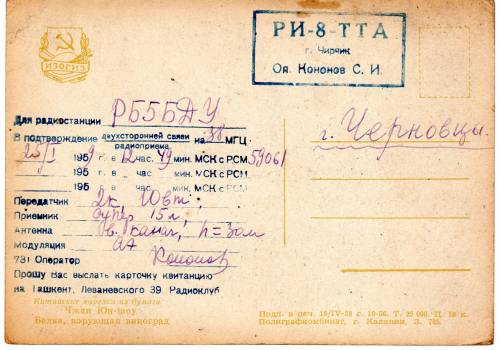 РИ-8-ТТА
г. Чирчик
Оп. Кононов С. И.
ИЗОГИЗ
Для радиостанции РБ5БДУ
В подтверждение двухсторонней связи на 38 МГЦ
радиоприема
25/I 1959 г. в 12 час. 49 мин. МСК с РСМ 59061
195 г. в час. мин. МСК с РСМ
195 г. в час. мин. МСК с РСМ
г. Черновцы.
Передатчик 2к, 10вт,
Приемник супер 15л,
Антенна в. канал, h=30м
Модуляция
731 Оператор Кононов
Прошу Вас выслать карточку квитанцию
на Ташкент, Леваневского 39, Радиоклуб
Китайская вырезка из бумаги
Чжан Юн-шоу
Белка, ворующая виноград
Подп. в печ. 15/IV-58 г. 10-56. Т. 25 000. Ц. 18 к.
Полиграфкомбинат, г. Калинин, З. 765.